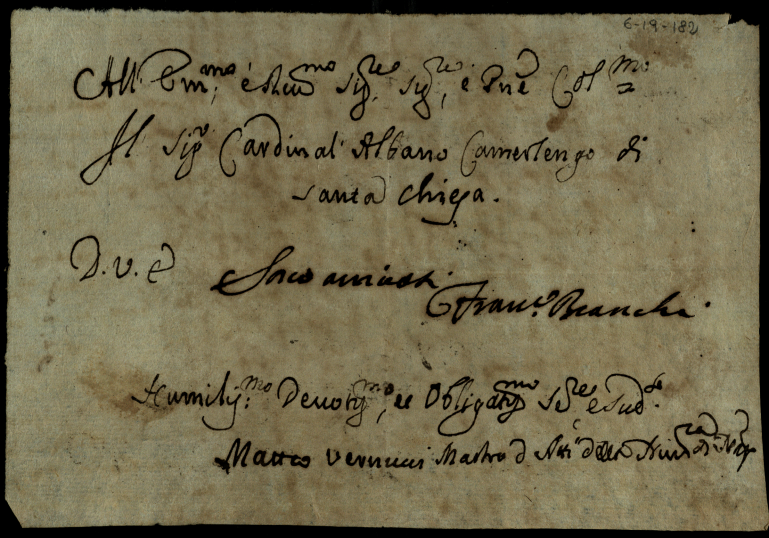 6-19-182
All' Em:mo é Rmo Sig.re Sig.re, e Pne Col.mo
Il Sigr Cardinal' Albano Camerlengo di
Santa Chiesa.
D. V. E
Franc.o Bianchi
Humiliss:mo Devotiss.mo, et Obligatiss.mo Se.re e Sud.o
Matteo Vernucci Mastro d Atti della